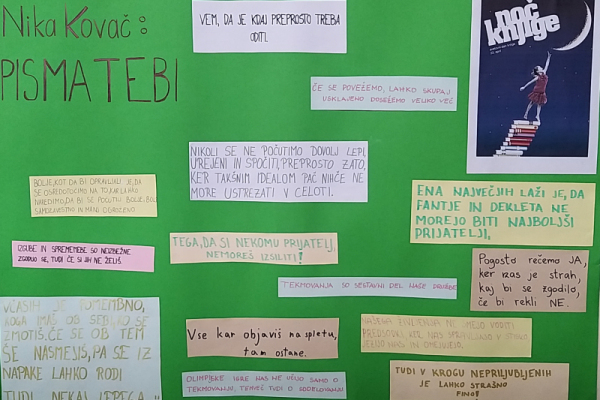 Nika Kovač:
PISMA TEBI
VEM, DA JE KDAJ PREPROSTO TREBA
ODITI.
noč
knjige
ČE SE POVEŽEMO, LAHKO SKUPAJ
USKLAJENO DOSEŽEMO VELIKO VEČ
NIKOLI SE NE POČUTIMO DOVOLJ LEPI,
UREJENI IN SPOČITI, PREPROSTO ZATO,
KER TAKŠNIM IDEALOM PAČ NIHČE NE
MORE USTREZATI V CELOTI.
BOLJE, KOT DA BI OPRAVLJALI JE, DA
SE OSREDOTOČIMO NA TO, KAR LAHKO
NAREDIMO, DA BI SE POČUTILI BOLJE, BOLJ
SAMOZAVESTNO IN MANJ OGROŽENO
ENA NAJVEČJIH LAŽI JE, DA
FANTJE IN DEKLETA NE
MOREJO BITI NAJBOLJŠI
PRIJATELJI.
IZGUBE IN SPREMEMBE SO NEIZBEŽNE
ZGODIJO SE, TUDI ČE SI JIH NE ŽELIŠ
TEGA, DA SI NEKOMU PRIJATELJ,
NEMOREŠ IZSILITI!
Pogosto rečemo JA,
ker nas je strah,
kaj bi se zgodilo,
če bi rekli NE.
TEKMOVANJA SO SESTAVNI DEL NAŠE DRUŽBE
VČASIH JE POMEMBNO,
KOGA IMAŠ OB SEBI, KO SE
ZMOTIŠ. ČE SE OB TEM
ŠE NASMEJIŠ, PA SE IZ
NAPAKE LAHKO RODI
TUDI NEKAJ LEPEGA."
Vse kar objaviš na spletu,
tam ostane.
NAŠEGA ŽIVLJENJA NE SMEJO VODITI
PREDSODKI, KER NAS SPRAVLJAJO V STISKO
IN OMEJUJEJO.
OLIMPIJSKE IGRE NAS NE UČIJO SAMO O
TEKMOVANJU, TEMVEČ TUDI O SODELOVANJU
TUDI V KROGU NEPRILJUBLJENIH
JE LAHKO STRAŠNO
FINO!